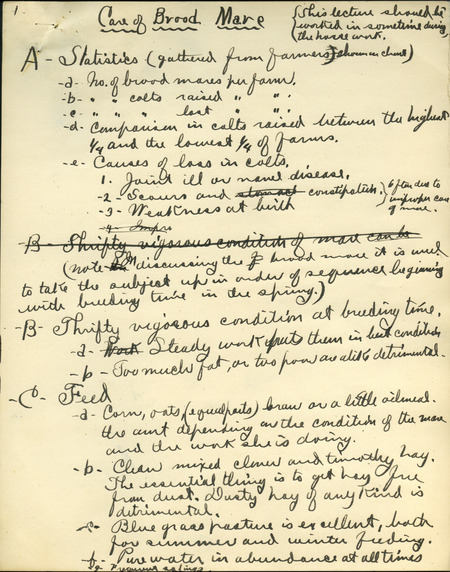 1
Care of Brood Mare
(This lecture should be
worked in sometime during
the horse work.
A - Statistics (gathered from farmers) (shown on chart)
-a- No. of brood mares per farm.
-b- " " colts raised " " .
-c- " " " lost " " .
-d- Comparison in colts raised between the highest
1/4 and the lowest 1/4 of farms.
-e- Causes of loss in colts.
1. Joint ill or navel disease.
-2- Scours and stomach constipation. } often due to
improper care
of mare.
-3- Weakness at birth
-4- Impro
B - Thrifty vigorous condition of mare can be
(note In discussing the brood mare it is well
to take the subject up in order of sequence beginning
with breeding time in the spring.)
-B- Thrifty vigorous condition at breeding time.
-a- Work Steady work puts them in best condition
-b- Too much fat, or two poor are alike detrimental.
-C- Feed
-a- Corn, oats, (equal parts) bran or a little oilmeal.
the amt depending on the condition of the mare
and the work she is doing.
-b- Clean mixed clover and timothy hay.
The essential thing is to get hay free
from dust. Dusty hay of any kind is
detrimental.
-c- Blue grass pasture is excellent, both
for summer and winter feeding.
-f- Pure water in abundance at all times
-g- Frequent saltings.